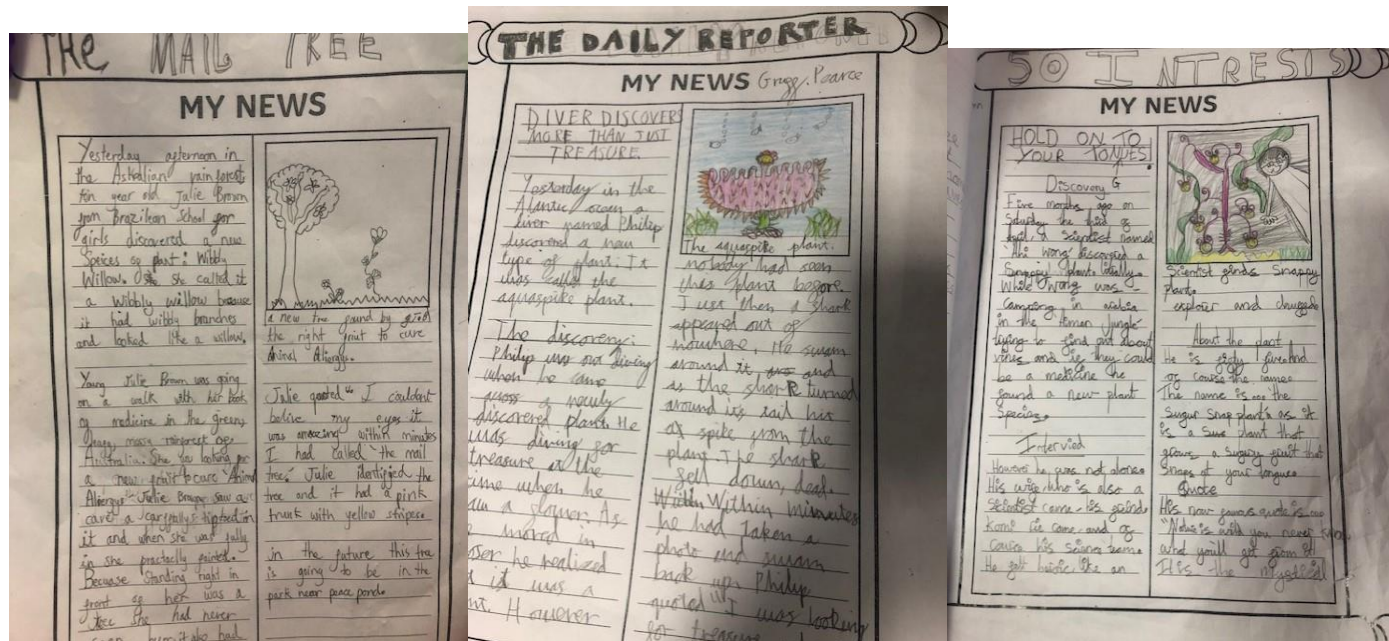 THE MAIL TREE
MY NEWS
Yesterday afternoon in
the Astralian rainforest
ten year old Julie Brown
from Brazilean School for
girls discovered a new
Speices of plant: Wibbly
Willow. she called it
a wibbly willow because
it had wibby branches
and looked like a willow.
Young Julie Brown was going
on a walk with her book
of medicine in the green
rainforest of
Australia. She was looking for
a new to cure Animal
Aliergys Julie saw a
cave! a carefully tiptoed in
it and, when she was fully
in she practaclly fainted.
Becuase Standing right in
front of her was a
tree She had never
a new tree found by
the right fruit to cure
Animal Aliergy.
Julie quoted " I couldant
belive my eyes it
was amazing within minutes
I had called "the mail
tree," Julie identified the
tree and it had a pink
trunk with yellow stripes.
in the future this tree
is going to be in the
park near peace pond.
THE DAILY REPORTER
MY NEWS Pearce
DIVER DISCOVERS
MORE THAN JUST
TREASURE.
Yesterday in the
Atlantic ocean a
diver named Philip
discovered a new
type of plant. It
was called the
aquaspike plant.
The discovery:
Philip was out diving
when he came
across a newly
discovered plant. He
was diving for
treasure at the
time when he
saw a flower. As
he moved in
closer he realized
it was a
However
The aquaspike plant.
nobody had seen
this plant before.
Just then a shark
appeared out of
nowhere. He swam
around it, and
as the shark turned
around its tail hit
a spike from the
plant. The shark
fell down, dead.
Within minutes
he had taken a
photo and swam
back up. Philip
quoted "I was looking
for treasure
SO INTRESIS
MY NEWS
HOLD ON TO
YOUR TONUES!
G
Discovery
Five months ago on
Saturday the third of
April, a scientist named
discovered a
Snappy plant
While Wong was
Camping in
in the Jungle
trying to find out about
vines and if they could
be a medicine he
found a new plant
Species.
Intervied
However he was not alone.
His wife who is also a
Scientist came his friend
Komi came and of
Course his science team.
He felt like an
Scientist finds Snappy
plant.
explorer and
About the plant
He is five And
of course the name.
The name is... the
Sugur Snap plants as it
is a plant that
grows a Sugury fruit that
Snaps at your tongues.
Quote
His now famous quote is...
"Natue is with you never know
what you'll get from it
It is the mystical